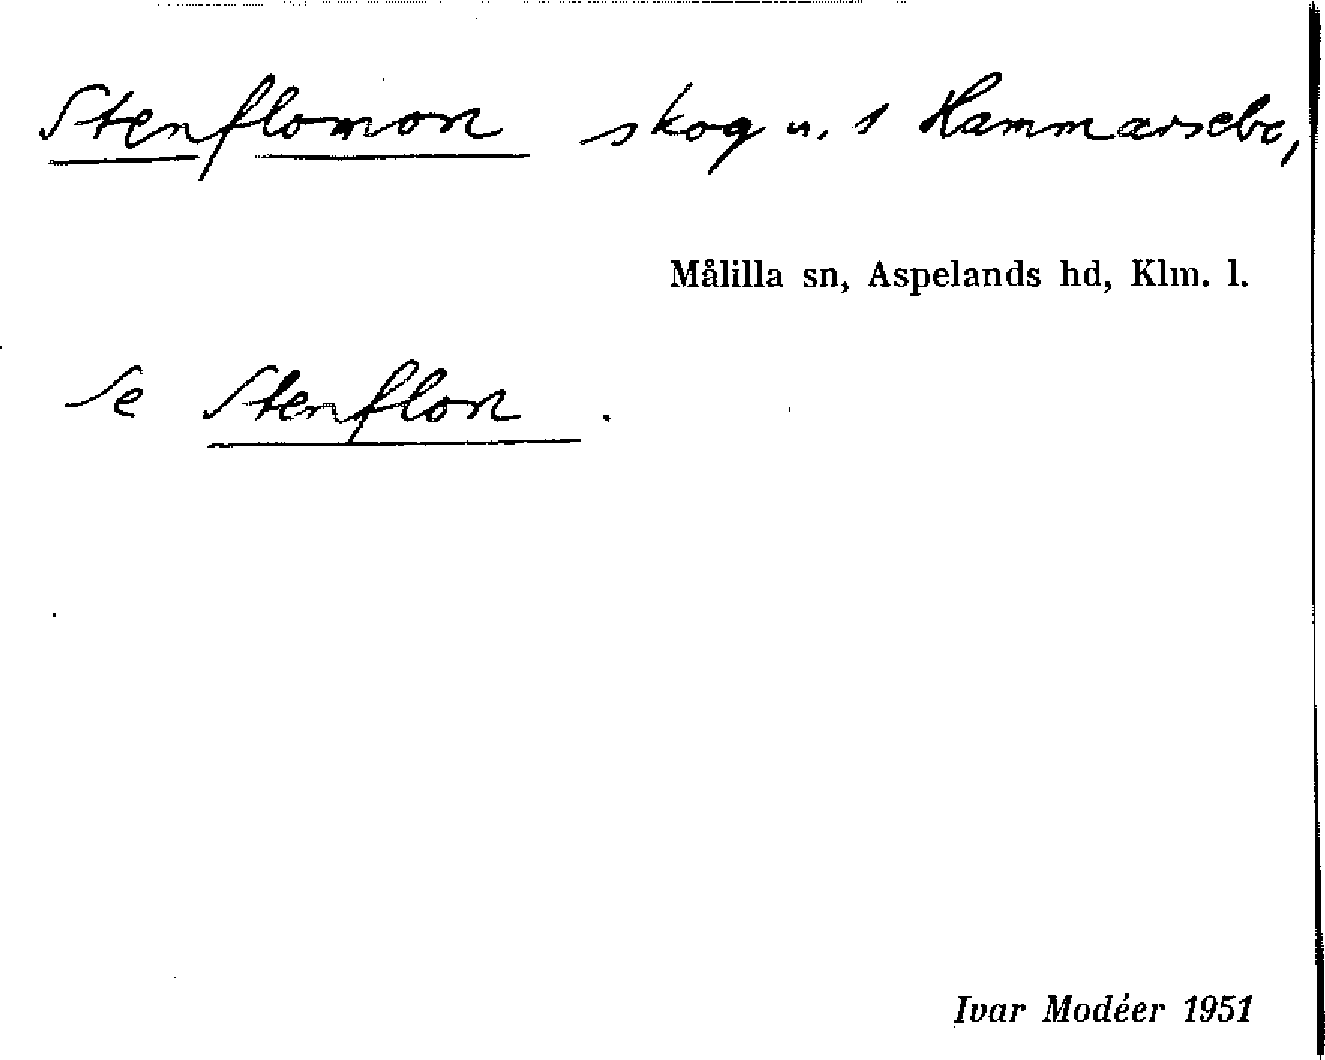 Stenflomon skog u. s Hammarsebo,
Målilla sn, Aspelands hd, Klm. l.
Se Stenflon .
Ivar Modéer 1951